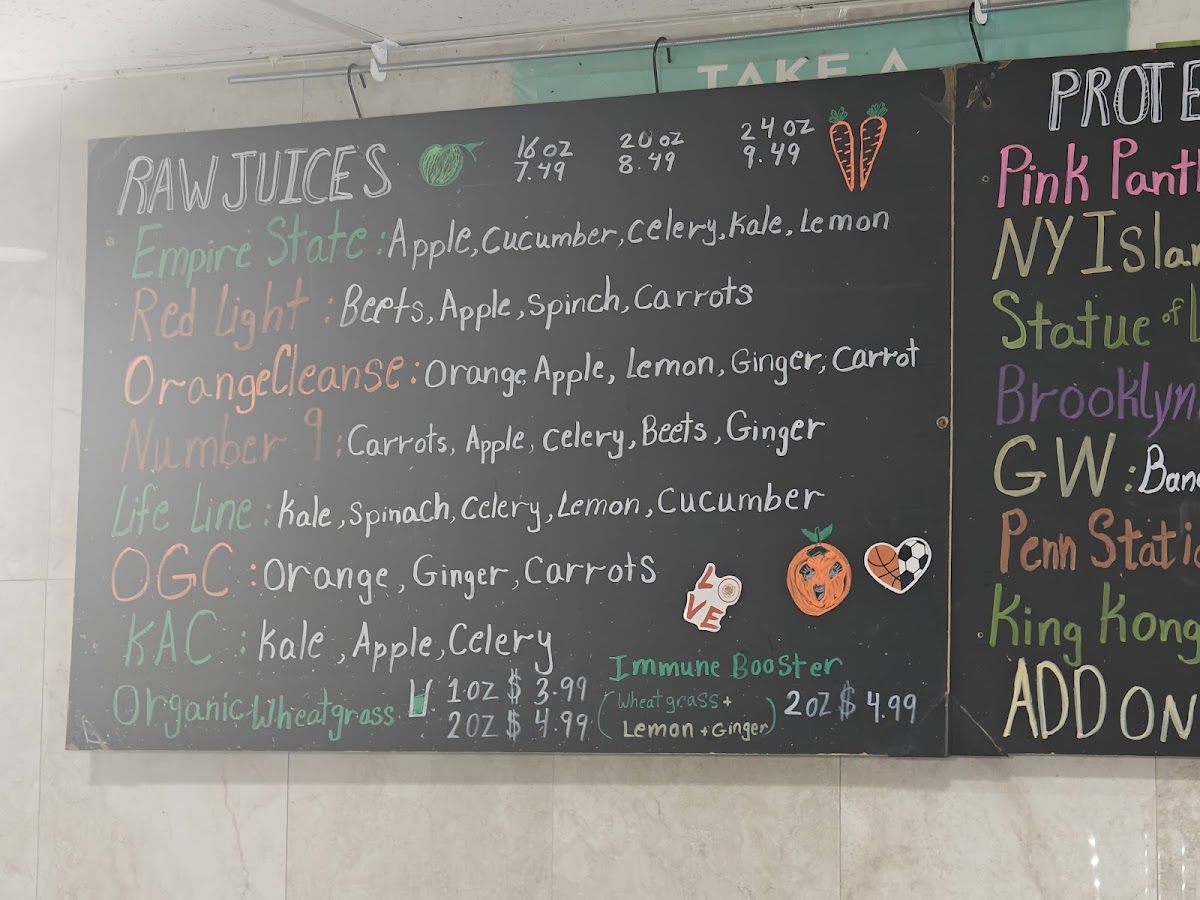 TAKE A
RAW JUICES
16 oz 20 oz 24 oz
7.49 8.49 9.49
Empire State : Apple, Cucumber, Celery, Kale, Lemon
Red Light : Beets, Apple, Spinch, Carrots
Orange Cleanse : Orange, Apple, Lemon, Ginger, Carrot
Number 9 : Carrots, Apple, Celery, Beets, Ginger
Life Line : Kale, Spinach, Celery, Lemon, Cucumber
OGC : Orange, Ginger, Carrots
KAC : Kale, Apple, Celery
Organic Wheatgrass 1oz $ 3.99
2oz $ 4.99
LOVE
Immune Booster
(Wheatgrass +
Lemon + Ginger) 2oz $ 4.99
PROTE
Pink Panth
NY Islan
Statue of L
Brooklyn
GW : Bana
Penn Statio
King Kong
ADD ON